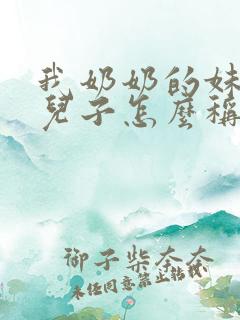 我奶奶的妹
兒子怎麼稱
御子柴奈奈
未经同意禁止转载